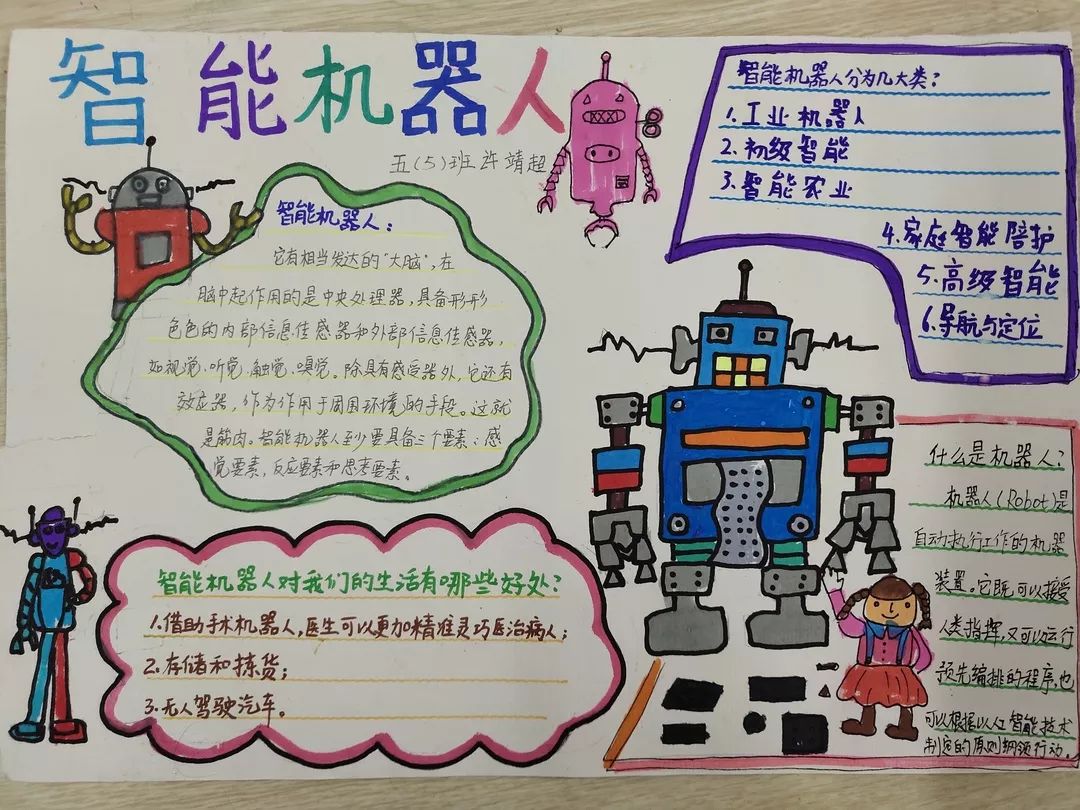 智能机器人
五(5)班许靖超
智能机器人:
它有相当发达的“大脑”,在
脑中起作用的是中央处理器,具备形形
色色的内部信息传感器和外部信息传感器,
如视觉、听觉、触觉、嗅觉。除具有感受器外,它还有
效应器,作为作用于周围环境的手段。这就
是筋肉。智能机器人至少要具备三个要素:感
觉要素,反应要素和思考要素。
智能机器人对我们的生活有哪些好处?
1.借助手术机器人,医生可以更加精准灵巧医治病人;
2.存储和拣货;
3.无人驾驶汽车。
智能机器人分为几大类?
1.工业机器人
2.初级智能
3.智能农业
4.家庭智能陪护
5.高级智能
6.导航与定位
什么是机器人?
机器人(Robot)是
自动执行工作的机器
装置。它既可以接受
人类指挥,又可以运行
预先编排的程序,也
可以根据以人工智能技术
制定的原则纲领行动。